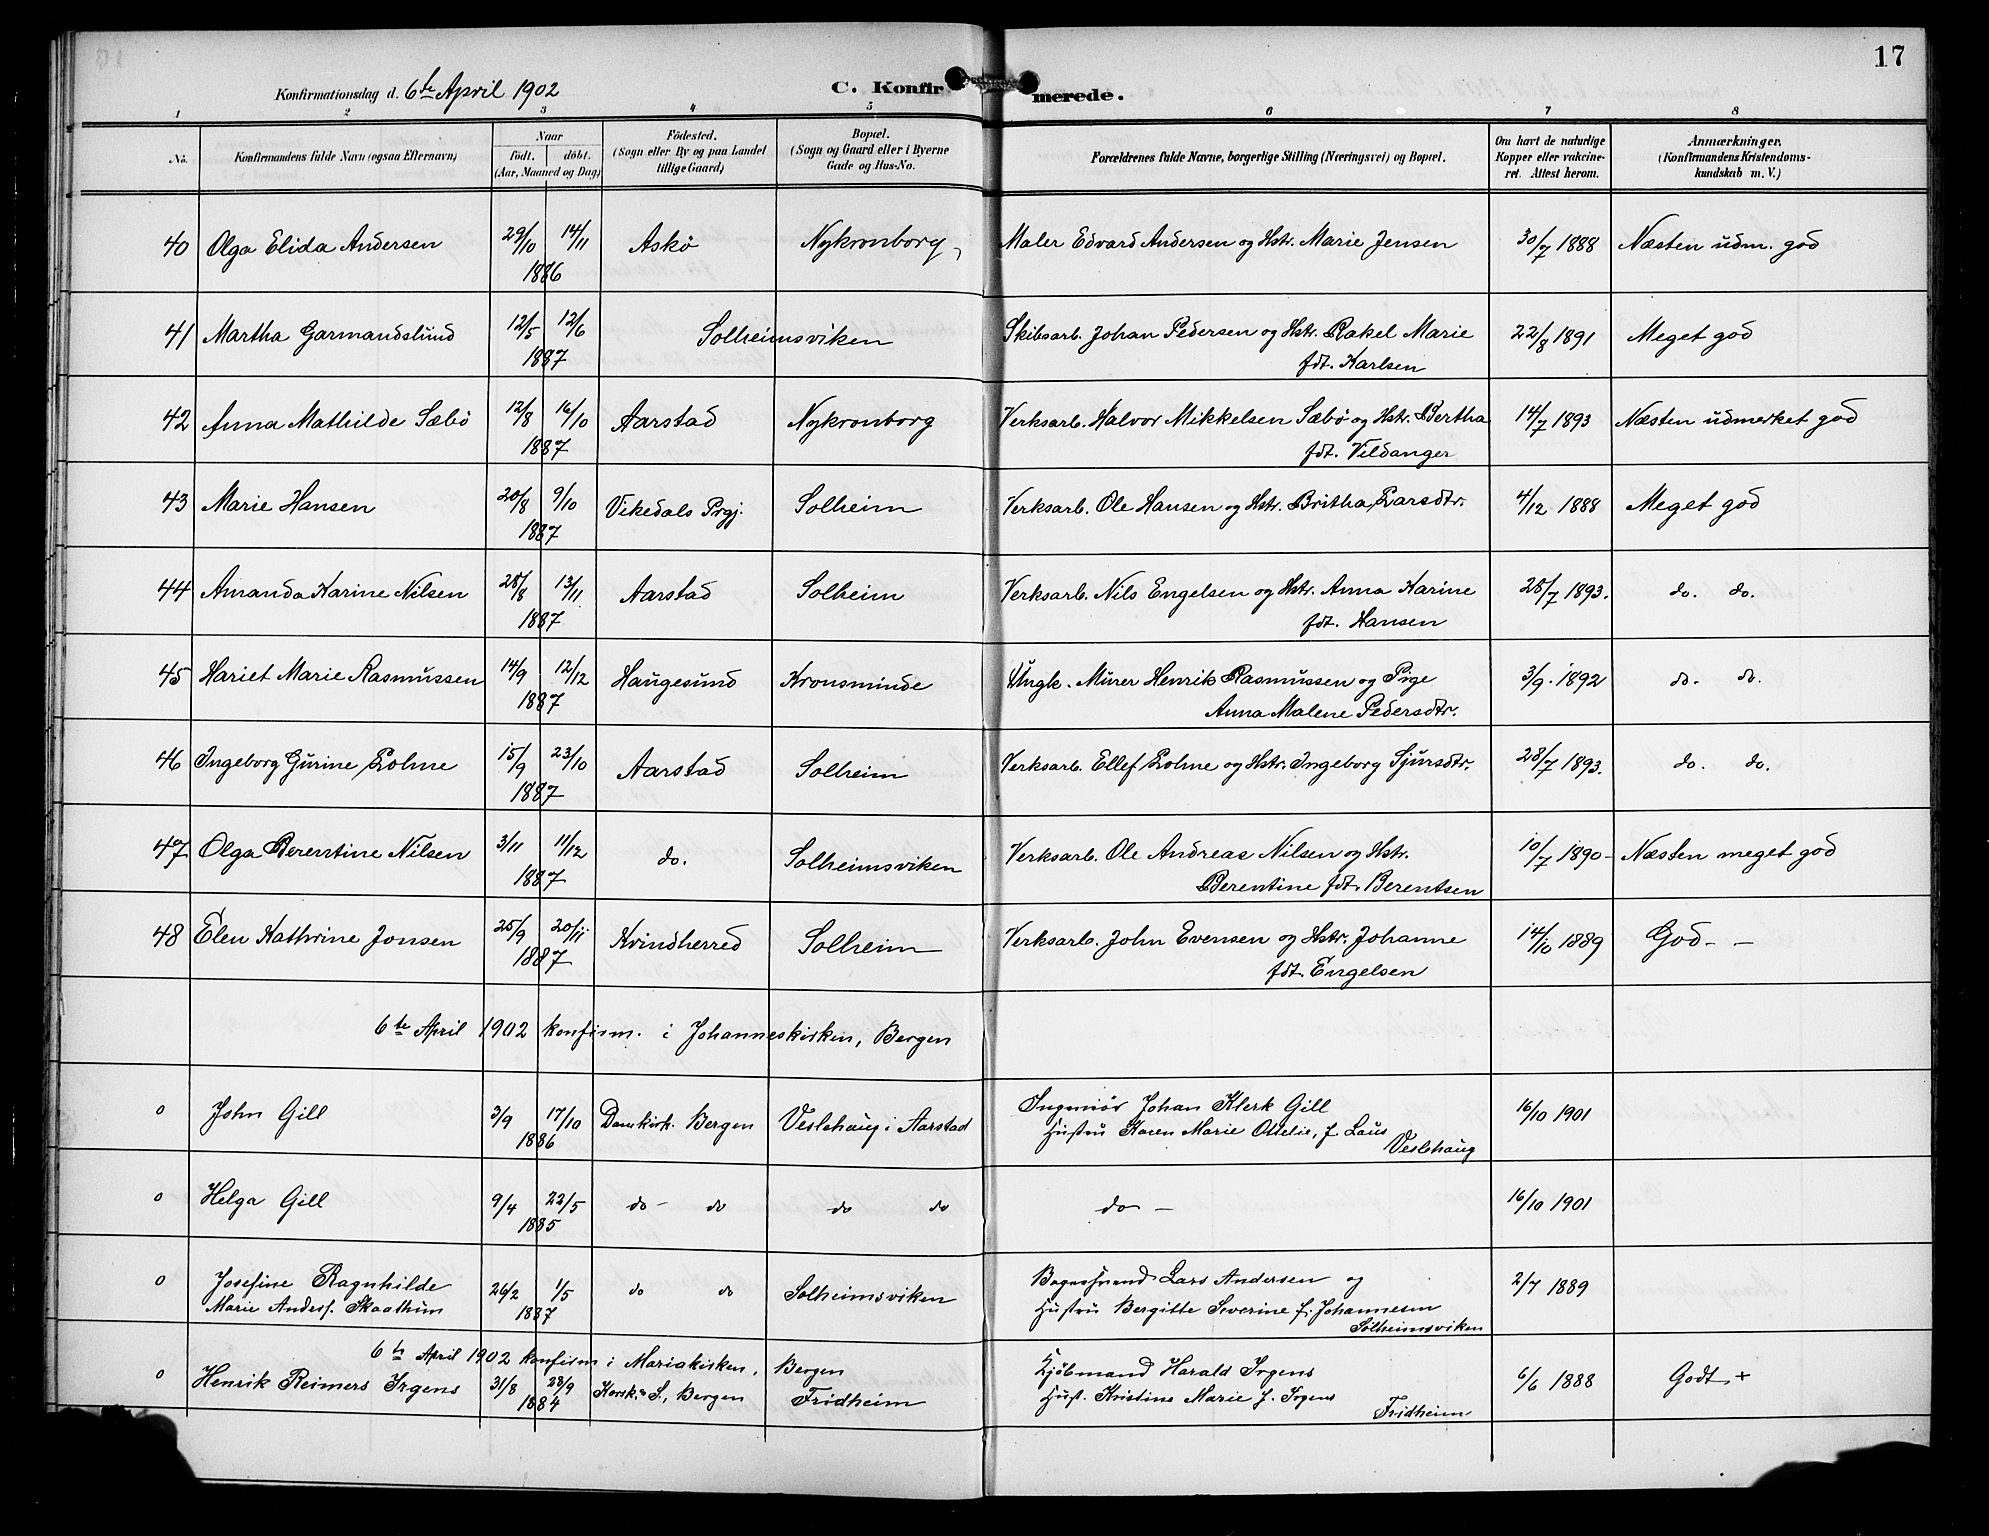 17
Konfirmationsdag d. 6te April 1902 C. Konfirmerede.
1 2 3 4 5 6 7 8
No. Konfirmandens fulde Navn (ogsaa Efternavn) Naar födt. döbt. (Aar, Maaned og Dag) Födested. (Sogn eller By og paa Landet tillige Gaard) Bopæl. (Sogn og Gaard eller i Byerne Gade og Hus-No. Forældrenes fulde Navne, borgerlige Stilling (Næringsvei) og Bopæl. Om havt de naturlige Kopper eller vakcineret. Attest herom. Anmærkninger. (Konfirmandens Kristendomskundskab m. V.)
40 Olga Elida Andersen 29/10 14/11 Askö Nykronborg Maler Edvard Andersen og Hstr. Marie Jensen 30/7 1888 Næsten udm. god
1886
41 Martha Garmandslund 12/5 12/6 Solheimsviken Skibsarb. Johan Pedersen og Hstr. Rakel Marie 22/8 1891 Meget god
1887 fdt. Karlsen
42 Anna Mathilde Sæbö 12/8 16/10 Aarstad Nykronborg Verksarb. Halvor Mikkelsen Sæbö og Hstr. Bertha 14/7 1893 Næsten udmerket god
1887 fdt. Vildanger
43 Marie Hansen 20/8 9/10 Vikedals Prgj. Solheim Verksarb. Ole Hansen og Hstr. Britha Larsdtr. 4/12 1888 Meget god
1887
44 Amanda Karine Nilsen 28/8 13/11 Aarstad Solheim Verksarb. Nils Engelsen og Hstr. Anna Karine 28/7 1893. do. do.
1887 fdt. Hansen
45 Hariet Marie Rasmussen 14/9 12/12 Haugesund Kronsminde Ungk. Murer Henrik Rasmussen og Pige 3/9. 1892 do. do.
1887 Anna Malene Pedersdtr.
46 Ingeborg Gurine Lohne 15/9 23/10 Aarstad Solheim Verksarb. Ellef Lohne og Hstr. Ingeborg Sjursdtr. 28/7 1893. do. do.
1887
47 Olga Berentine Nilsen 3/11 11/12 do. Solheimsviken Verksarb. Ole Andreas Nilsen og Hstr. 10/7 1890 - Næsten meget god
1887 Berentine fdt. Berentsen
48 Elen Kathrine Jonsen 25/9 20/11 Kvindherred Solheim Verksarb. John Evensen og Hstr. Johanne 14/10 1889 God - -
1887 fdt. Engelsen
6te April 1902 konfirm. i Johanneskirken, Bergen
o John Gill 3/9 17/10 Domkirk. Bergen Veslehaug i Aarstad Ingeniör Johan Klerk Gill 16/10 1901
1886 Hustru Karen Marie Ottelie, f. Laus
Veslehaug
o Helga Gill 9/4 22/5 do - do do do do - 16/10 1901
1885
o Josefine Ragnhilde 26/2 1/5 do do Solheimsviken Lars Andersen og 2/7 1889
Marie Anders. Skaathun 1887 Hustru Bergitte Severine f. Johannesen
Solheimsviken
6te April 1902 konfirm i Mariakirken, Bergen
o Henrik Reimers Irgens 31/8 28/9 Korsk. S., Bergen Fridheim Kjöbmand Harald Irgens 6/6 1888 Godt +
1884 Hust. Kristine Marie f. Irgens
Fridheim